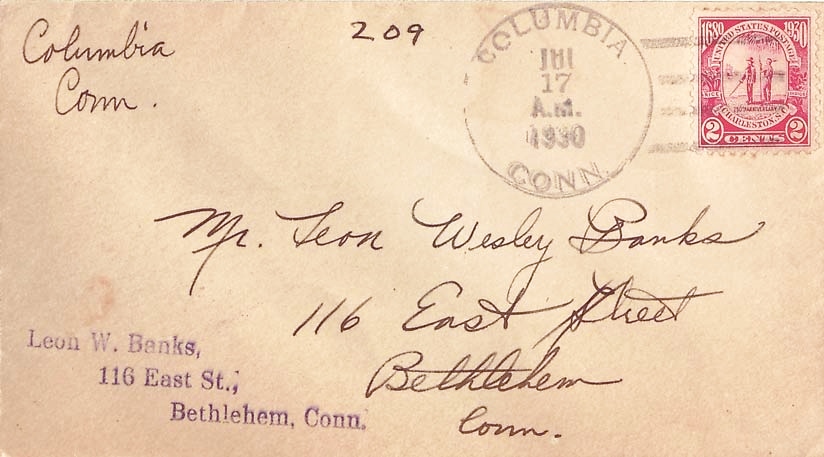 Columbia
Conn.
209
COLUMBIA
JUL
17
A.M.
1930
CONN.
1680 1930
UNITED STATES POSTAGE
CHARLESTON, S.C.
2 CENTS 2
Mr. Leon Wesley Banks
116 East Street
Bethlehem
Conn.
Leon W. Banks,
116 East St.,
Bethlehem, Conn.